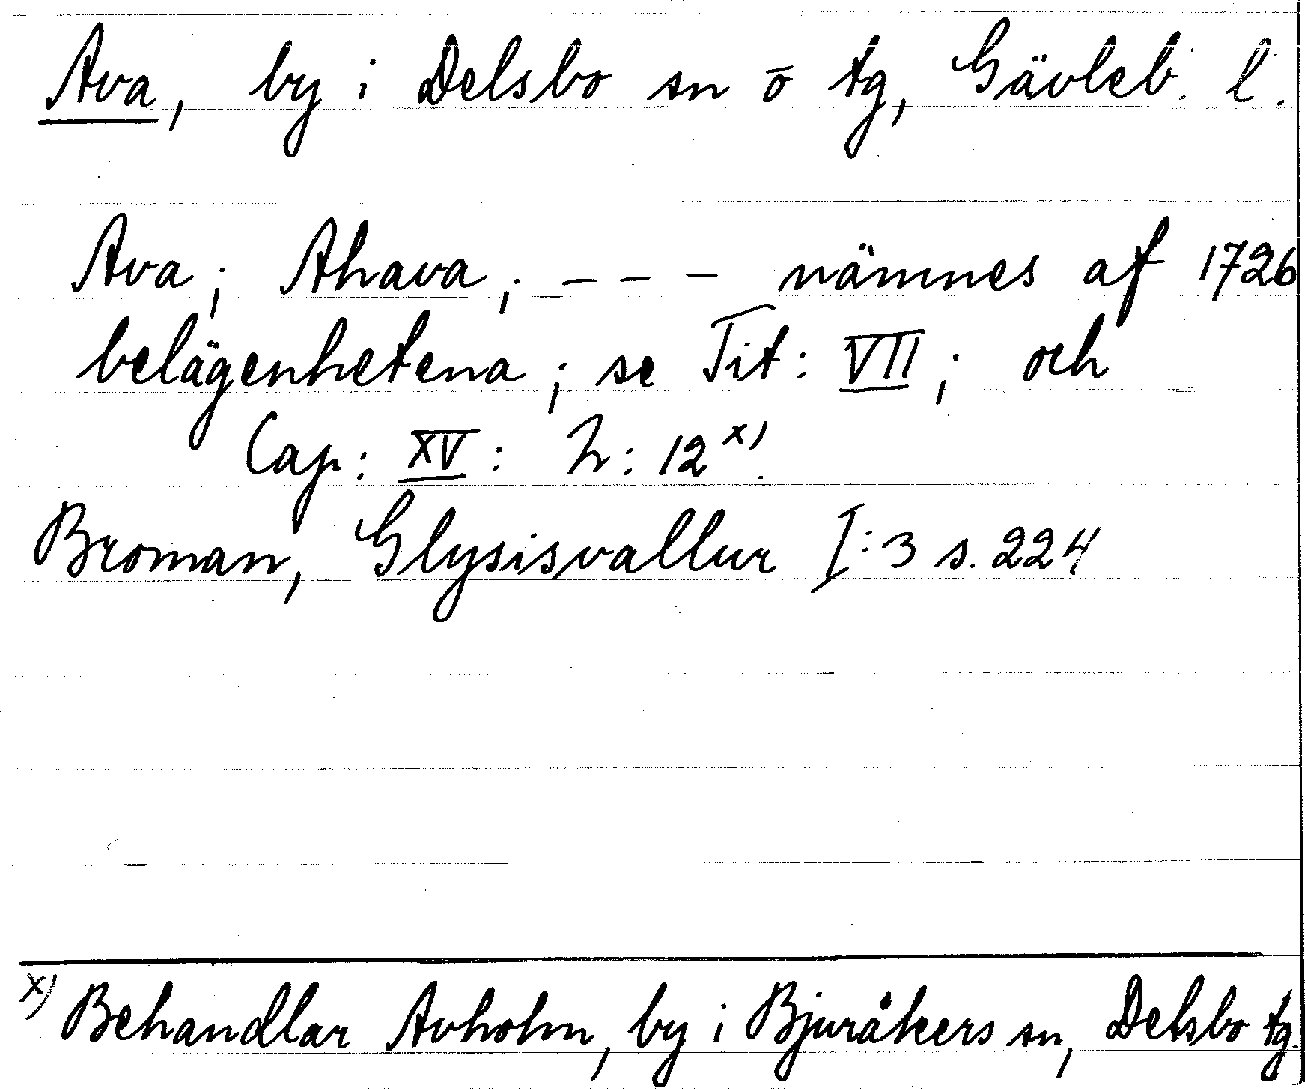 Ava, by i Delsbo sn o tg, Gävleb. l.
Ava; Ahava; - - - nämnes af 1726
belägenhetena; se Tit: VII; och
Cap: XV: h: 12 x).
Broman, Glysisvallur I:3 s. 224
x) Behandlar Avholm, by i Bjuråkers sn, Delsbo tg.